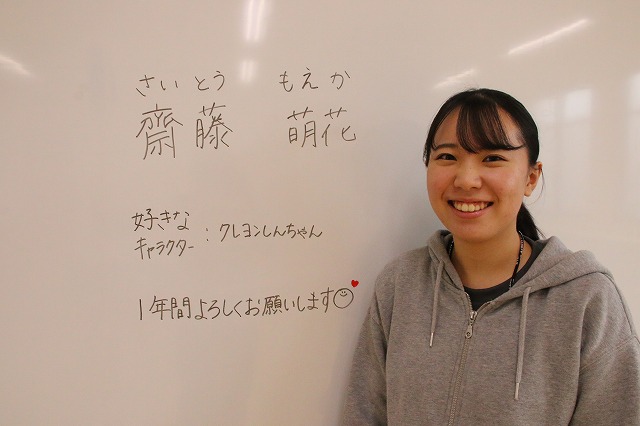 さいとう もえか
齋藤 萌花
好きな
キャラクター：クレヨンしんちゃん
1年間よろしくお願いします